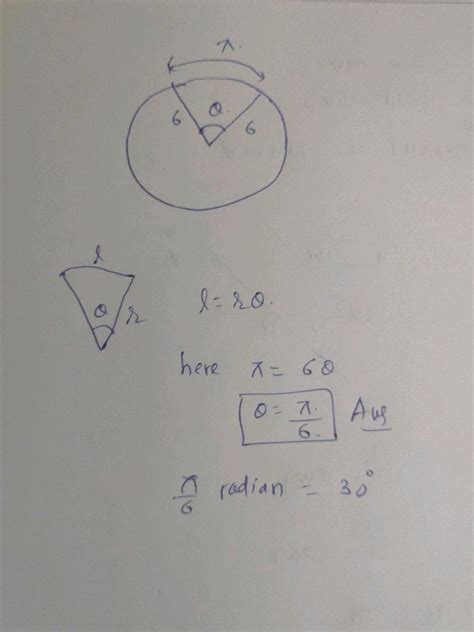 π
θ
6 6
l
θ r
l = rθ.
here π = 6θ
θ = π/6. Ans
π/6 radian = 30°